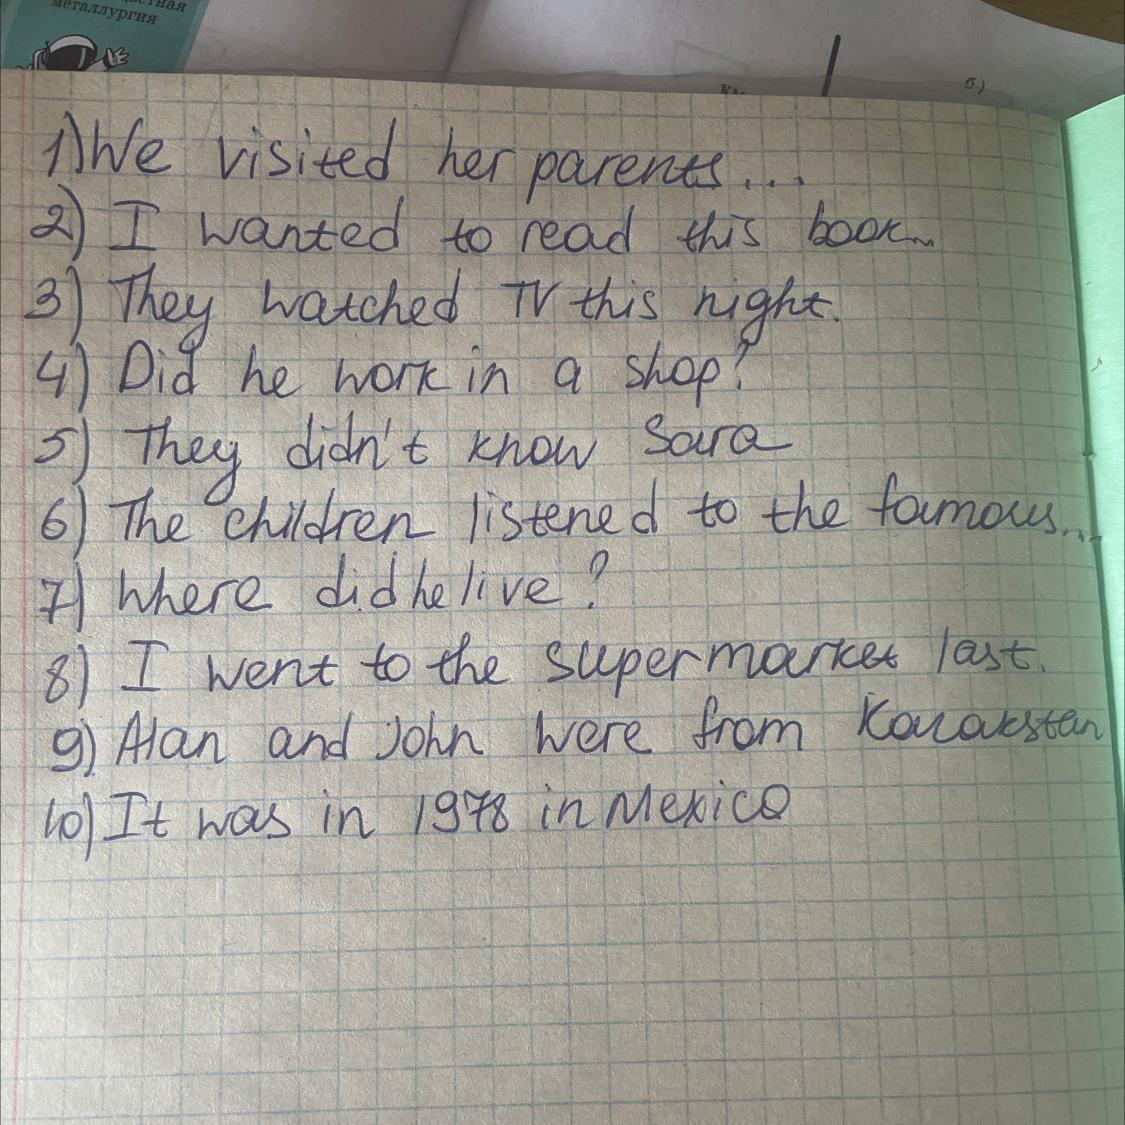 металлургия
б)
1) We visited her parents...
2) I wanted to read this book...
3) They watched TV this night.
4) Did he work in a shop?
5) They didn't know Sara
6) The children listened to the famous...
7) Where did he live?
8) I went to the supermarket last.
9) Alan and John were from Kazakstan
10) It was in 1978 in Mexico